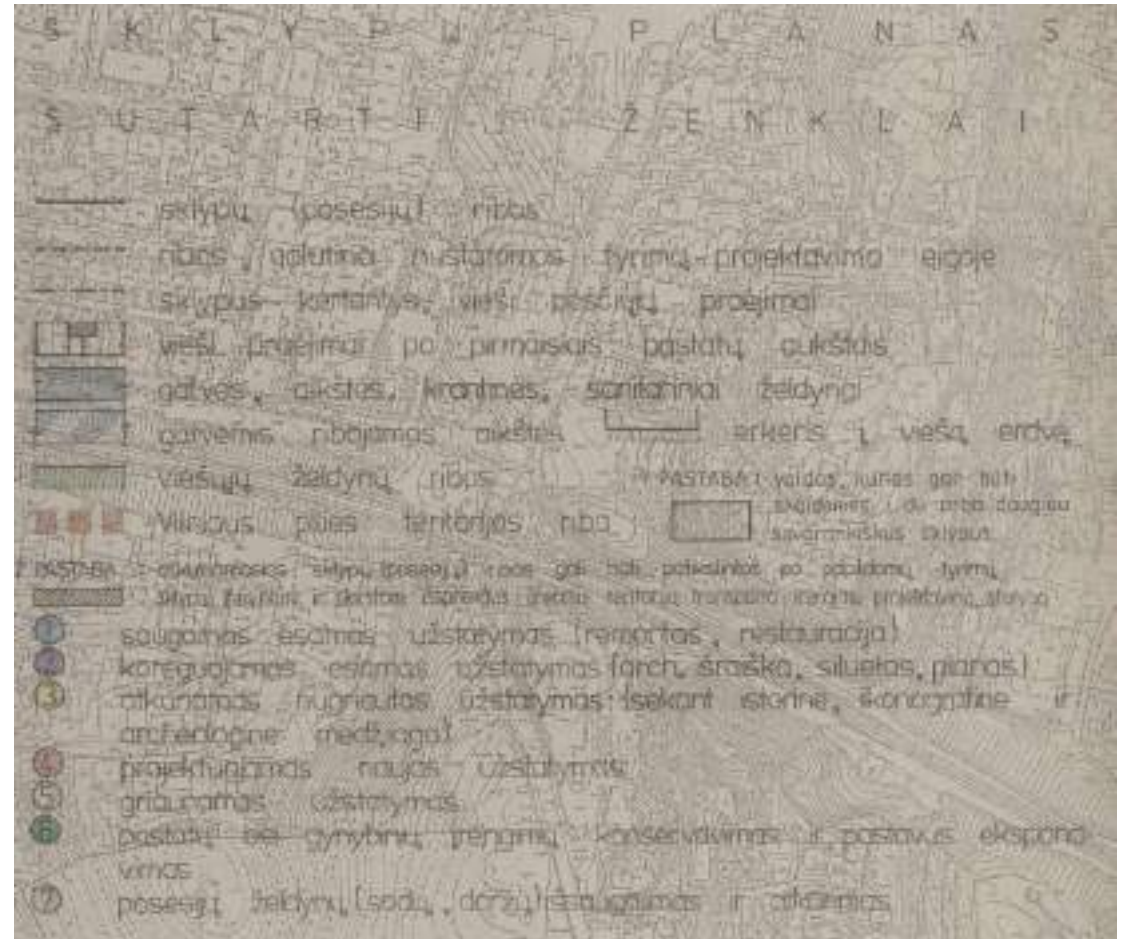 SKLYPŲ PLANAS
SUTARTI ŽENKLAI
sklypų (posesijų) ribos
ribos, galutinai nustatomos tyrimų-projektavimo eigoje
sklypus kertantys, vieši pėsčiųjų praėjimai
vieši praėjimai po pirmaisiais pastatų aukštais
gatvės, aikštės, krantinės, sanitariniai želdynai
gatvėmis ribojamos aikštės erkeris į viešą erdvę
viešųjų želdynų ribos
PASTABA: valdos, kurios gali būti
suskaidomos į du arba daugiau
savarankiškus sklypus
Vilniaus pilies teritorijos riba
PASTABA: sklypų (posesijų) ribos gali būti patikslintos po papildomų tyrimų
1 saugomas esamas užstatymas (remontas, restauracija)
2 koreguojamas esamas užstatymas (arch. išraiška, siluetas, planas)
3 atkuriamas nugriautas užstatymas (sekant istorine, ikonografine ir
archeologine medžiaga)
4 projektuojamas naujas užstatymas
5 griaunamas užstatymas
6 pastatų bei gynybinių įrengimų konservavimas ir pastovus ekspona
vimas
7 posesijų želdynų (sodų, daržų) išsaugojimas ir atkūrimas